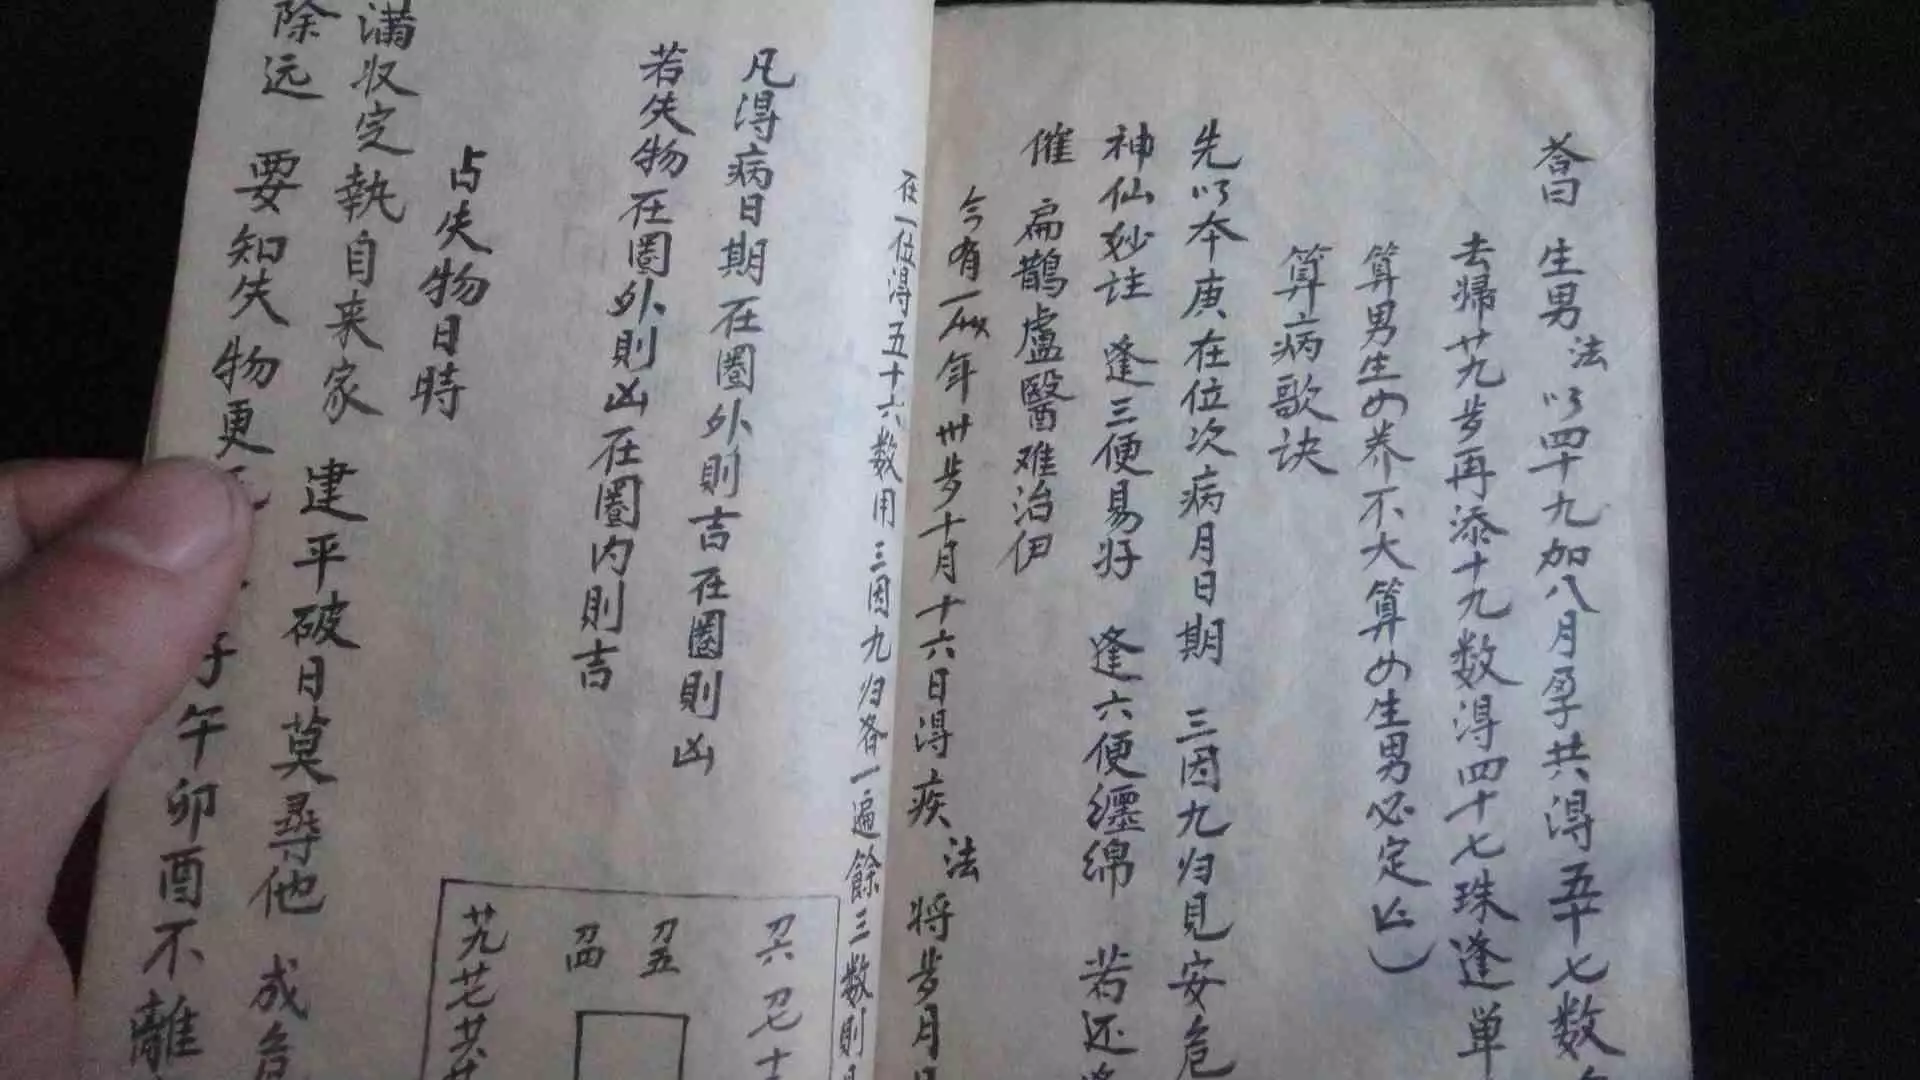 荅曰 生男 法 以四十九加八月孕共得五十七数
去歸廿九步再添十九数得四十七珠逢単
算男生女养不大算女生男必定亡
算病歌诀
先以本庚在位次病月日期 三因九归見安危
神仙妙诀 逢三便易好 逢六便纏綿 若还
催 扁鵲盧醫难治伊
今有一人年卅歩十月十六日得疾 法 将歩月
在一位得五十六数用三因九归各一遍餘三数則
凡得病日期在圏外則吉在圏則凶
若失物在圏外則凶在圏内則吉
刀六 刀七
刀五
刀四
廿九 廿七
占失物日時
满收定執自来家 建平破日莫尋他 成危
除远 要知失物更 子午卯酉不離